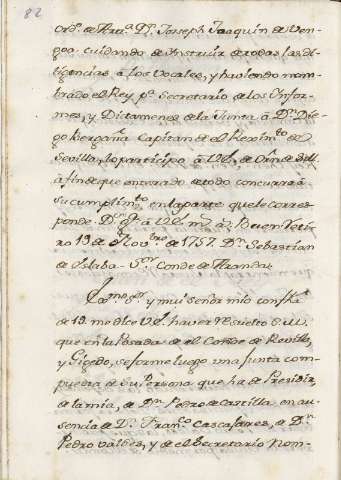 82
Ord.^s de Art.^a D.^n Joseph Joaquin de Von-
goa cuidando de instruir de todas las di-
ligencias à los Vocales, y haviendo nom-
brado el Rey p.^r Secretario de los Infor-
mes, y Dictamenes de la Junta à D.^n Die-
go Bergaña Capitan de el Reximi.^to de
Sevilla, lo participo à V.E. de Orn. de S.M.
à fin de que enterado de todo concurra à
su cumplim.^to en la parte que le corres-
ponde. D.^s g.^e à V.E. m.^s a.^s Buen Reti-
ro 19 de Nov.^bre de 1757. D.^n Sebastian
de Eslaba. S.^or Conde de Aranda.
y mui señor mio con fha
de 19. me dice V.E. haver resuelto S.M.
que en la Posada de el Conde de Revilla
y Gigedo, se forme luego una Junta com-
puesta de su Persona que ha de Presidir,
de la mia, de D.^n Pedro de Castilla en au-
sencia de D.^n Fran.^co Cascajares, de D.^n
Pedro Valdes, y de el Secretario Nom-